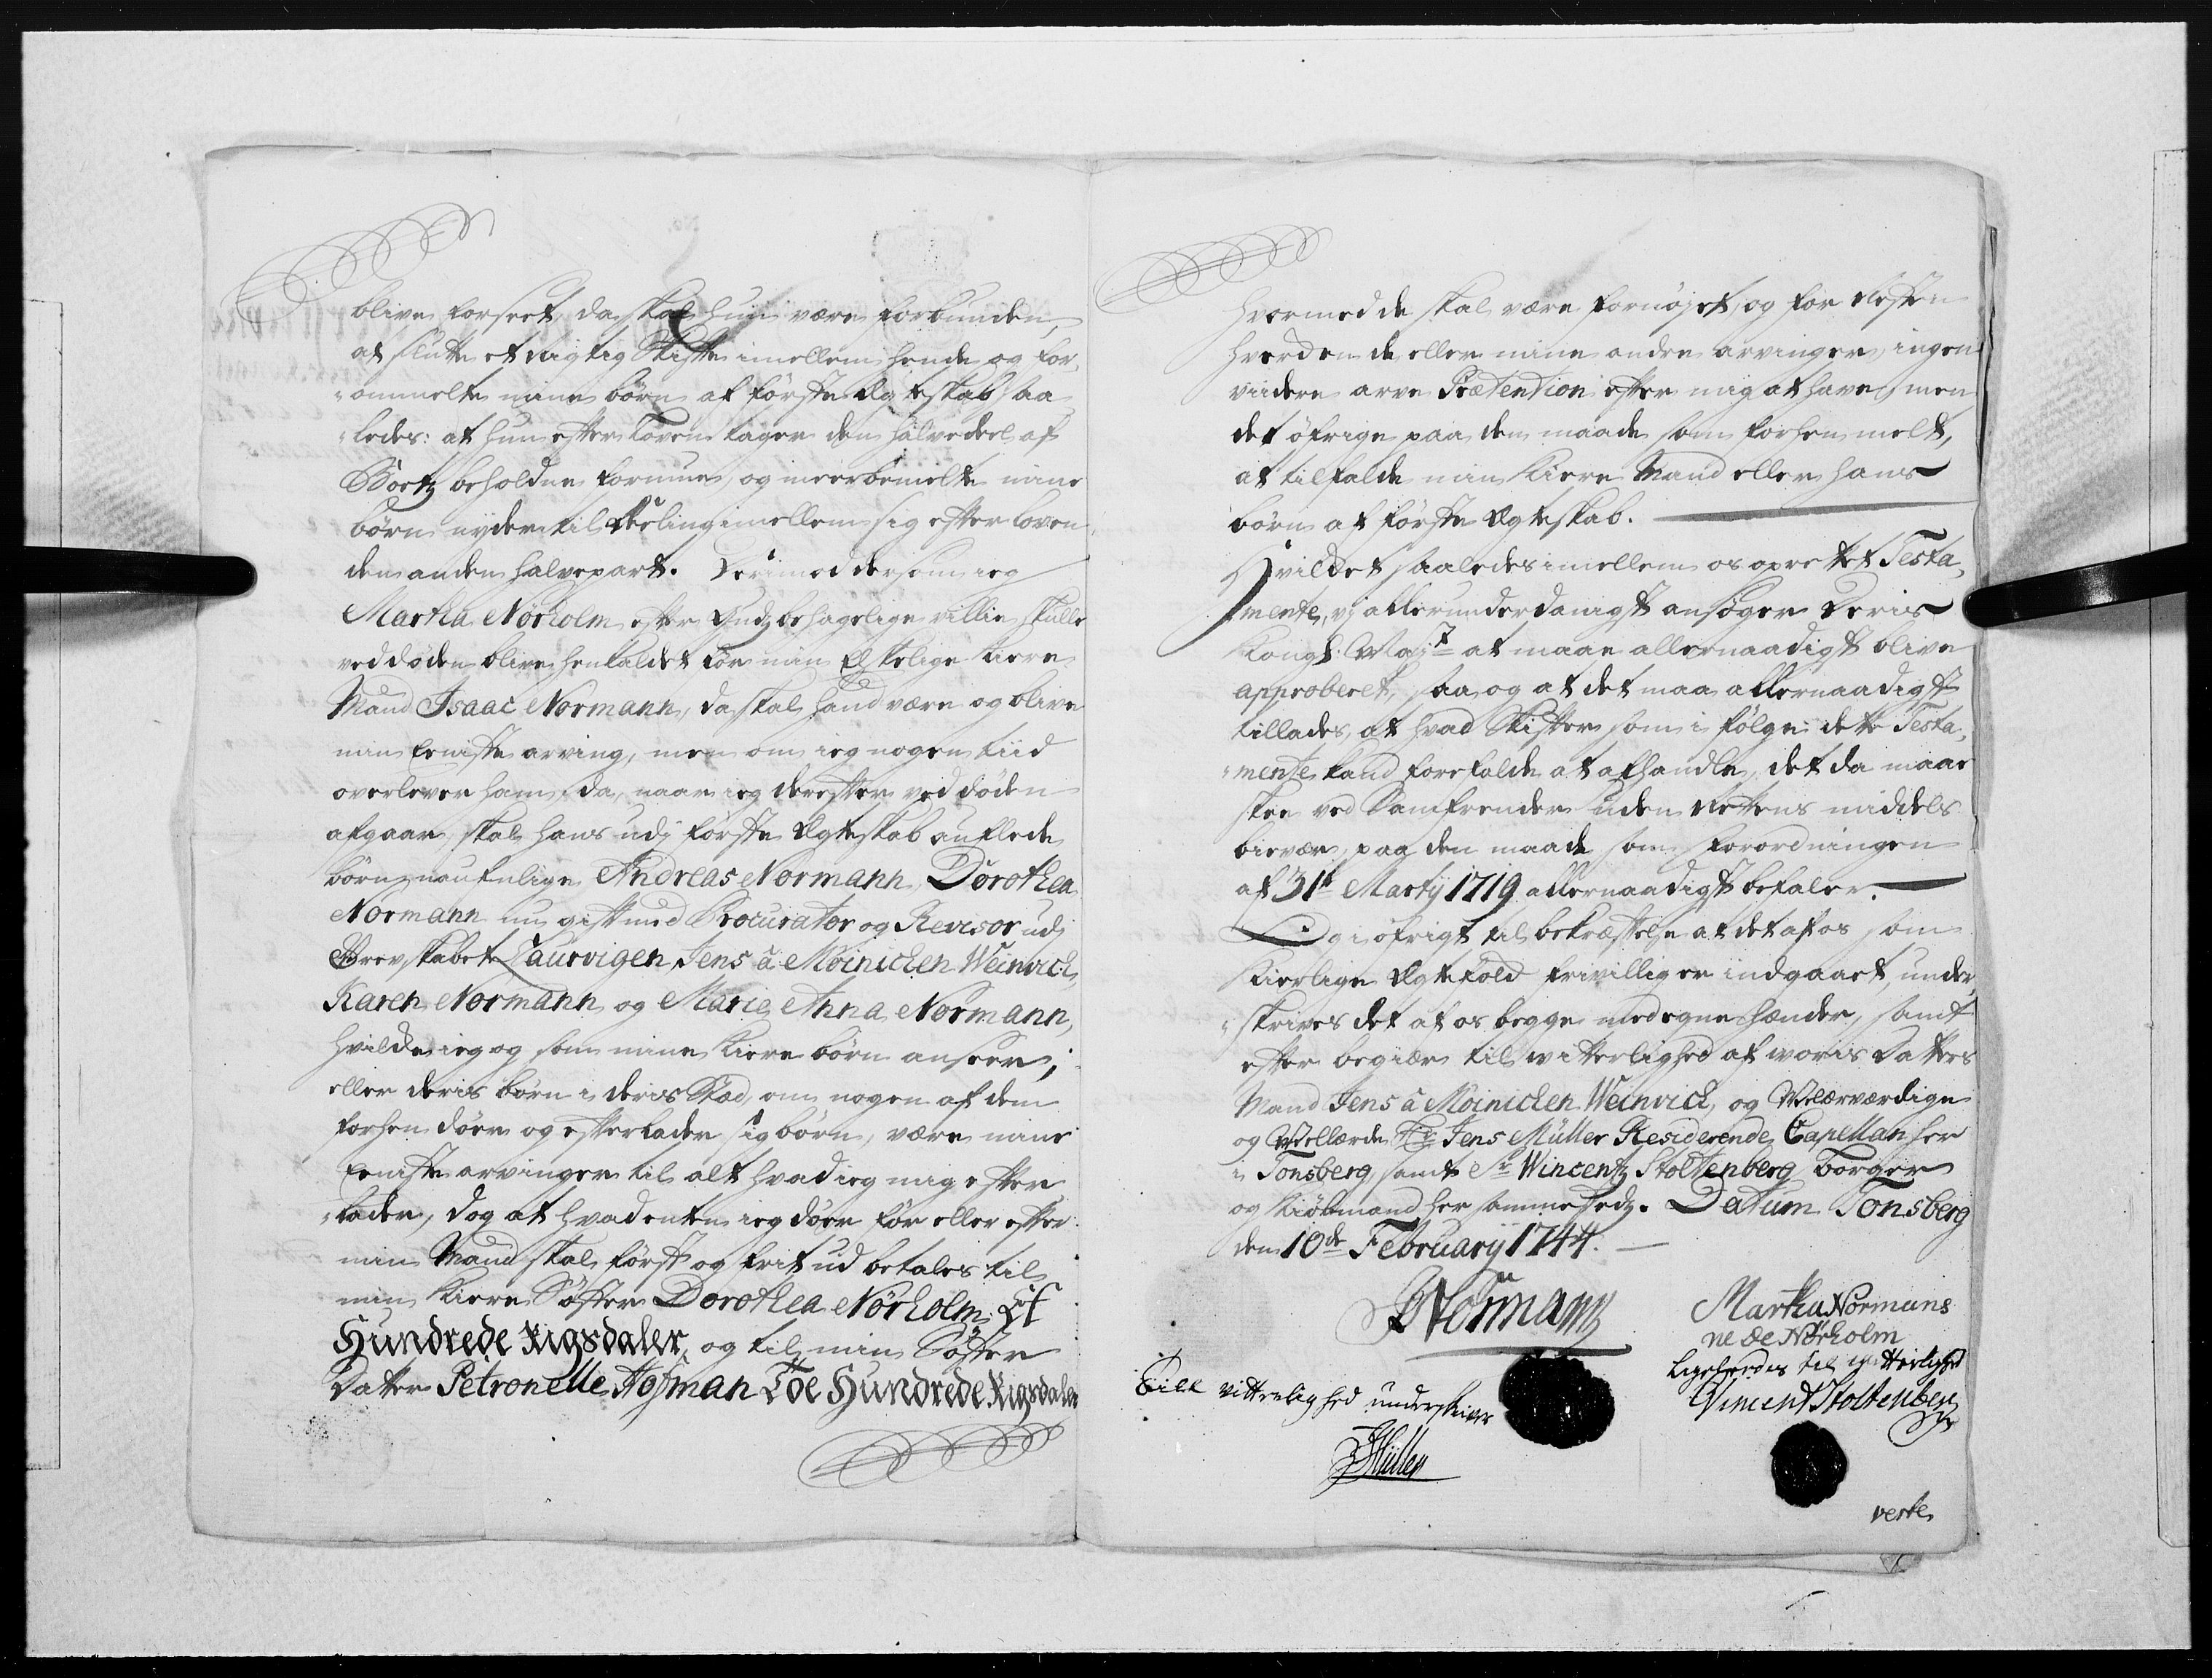 blive forseet, da skal hun være forbunden,
at slutte et rigtig Skifte imellem hende og for,
"ommelte mine börn af förste Ægteskab saa
"ledes: at hun efter Loven tager den halvedeel af
Boetz beholdne formue, og meerbemelte mine
börn nyder til deeling imellem sig efter loven
den anden halvepart. Derimod dersom ieg
Martha Nörholm efter Gudz behagelige villie skulle
ved döden blive henkaldet för min Elskelige kiere
Mand Isaac Normann, da skal hand være og blive
min Eeniste arving, men om ieg nogen tiid
overlever ham, da, naar ieg derefter ved döden
afgaar, skal hans udj förste Ægteskab auflede
börn, naufnlige Andreas Normann, Dorothea
Normann nu gift med Procurator og Revisor udj
Grevskabet Laurvigen Jens â Moinichen Weinvich,
Karen Normann og Marie Anna Normann,
hvilcke ieg og som mine kiere börn anseer,
eller deris börn i deris Stæd, om nogen af dem
forhen döer og efterlader sig börn, være mine
Eeniste arvinger til alt hvad ieg mig efter
"lader, dog at hvad enten ieg döer för eller efter
min Mand skal först og frit ud betales til
min kiere Söster Dorothea Nörholm Et
Hundrede Rigsdaler, og til min Söster
Datter Petronelle Hofman Toe Hundrede Rigsdaler
hvormed de skal være fornöjet, og for Resten
hverden de eller mine andre arvinger ingen
viidere arve Prætention efter mig at have, men
det öfrige paa den maade som forhen melt,
at tilfalde min kiere Mand eller hans
börn af förste Ægteskab.
Hvilcket saaledes imellem os oprettet Testa,
mente, vj allerunderdanigst ansöger Deris
Kongl: Mayt at maae allernaadigst blive
approberet, saa og at det maa allernaadigst
tillades, at hvad Skifter som i fölge dette Testa,
"mente kand forefalde at afhandle, det da maae
skee ved Samfrender uden Rettens middels
bievær, paa den maade som Forordningen
af 31te Martij 1719 allernaadigst befaler.
Og i öfrigt til bekræftelse at det af os som
kierlige Ægtefold frivillig er indgaaet, under,
"skrives det af os begge med egne hænder, samt
efter begiær til vitterlighed af woris Datters
Mand Jens â Moinichen Weinvich, og Velærværdige
og Vellærde Hr Jens Müller Residerende Capellan her
i Tonsberg, samt Sr Wincentz Stoltenberg borger
og kiöbmand her sammestedz. Datum Tonsberg
den 10de Februarij 1744.
INormann
Martha Normans
ne de Nörholm
Ligeleedes til witterlighed
Vincent Stoltenberg
Till vitterlighed underskriver
JMüller
verte